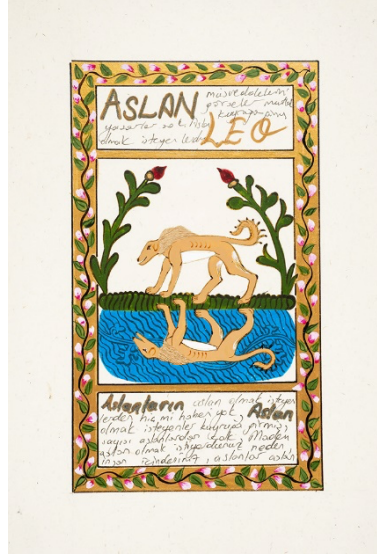 ASLAN müsveddelerin
görseler mutlak
LEO
yazarlar
olmak isteyen
Aslanların aslan olmak isteyen
lerden hiç mi haberi yok, Aslan
olmak isteyenler kuyruğa girmiş,
sayısı aslanlardan çok. Madem
aslan olmak istiyordunuz neden
insan içindesiniz, aslanlar aslan